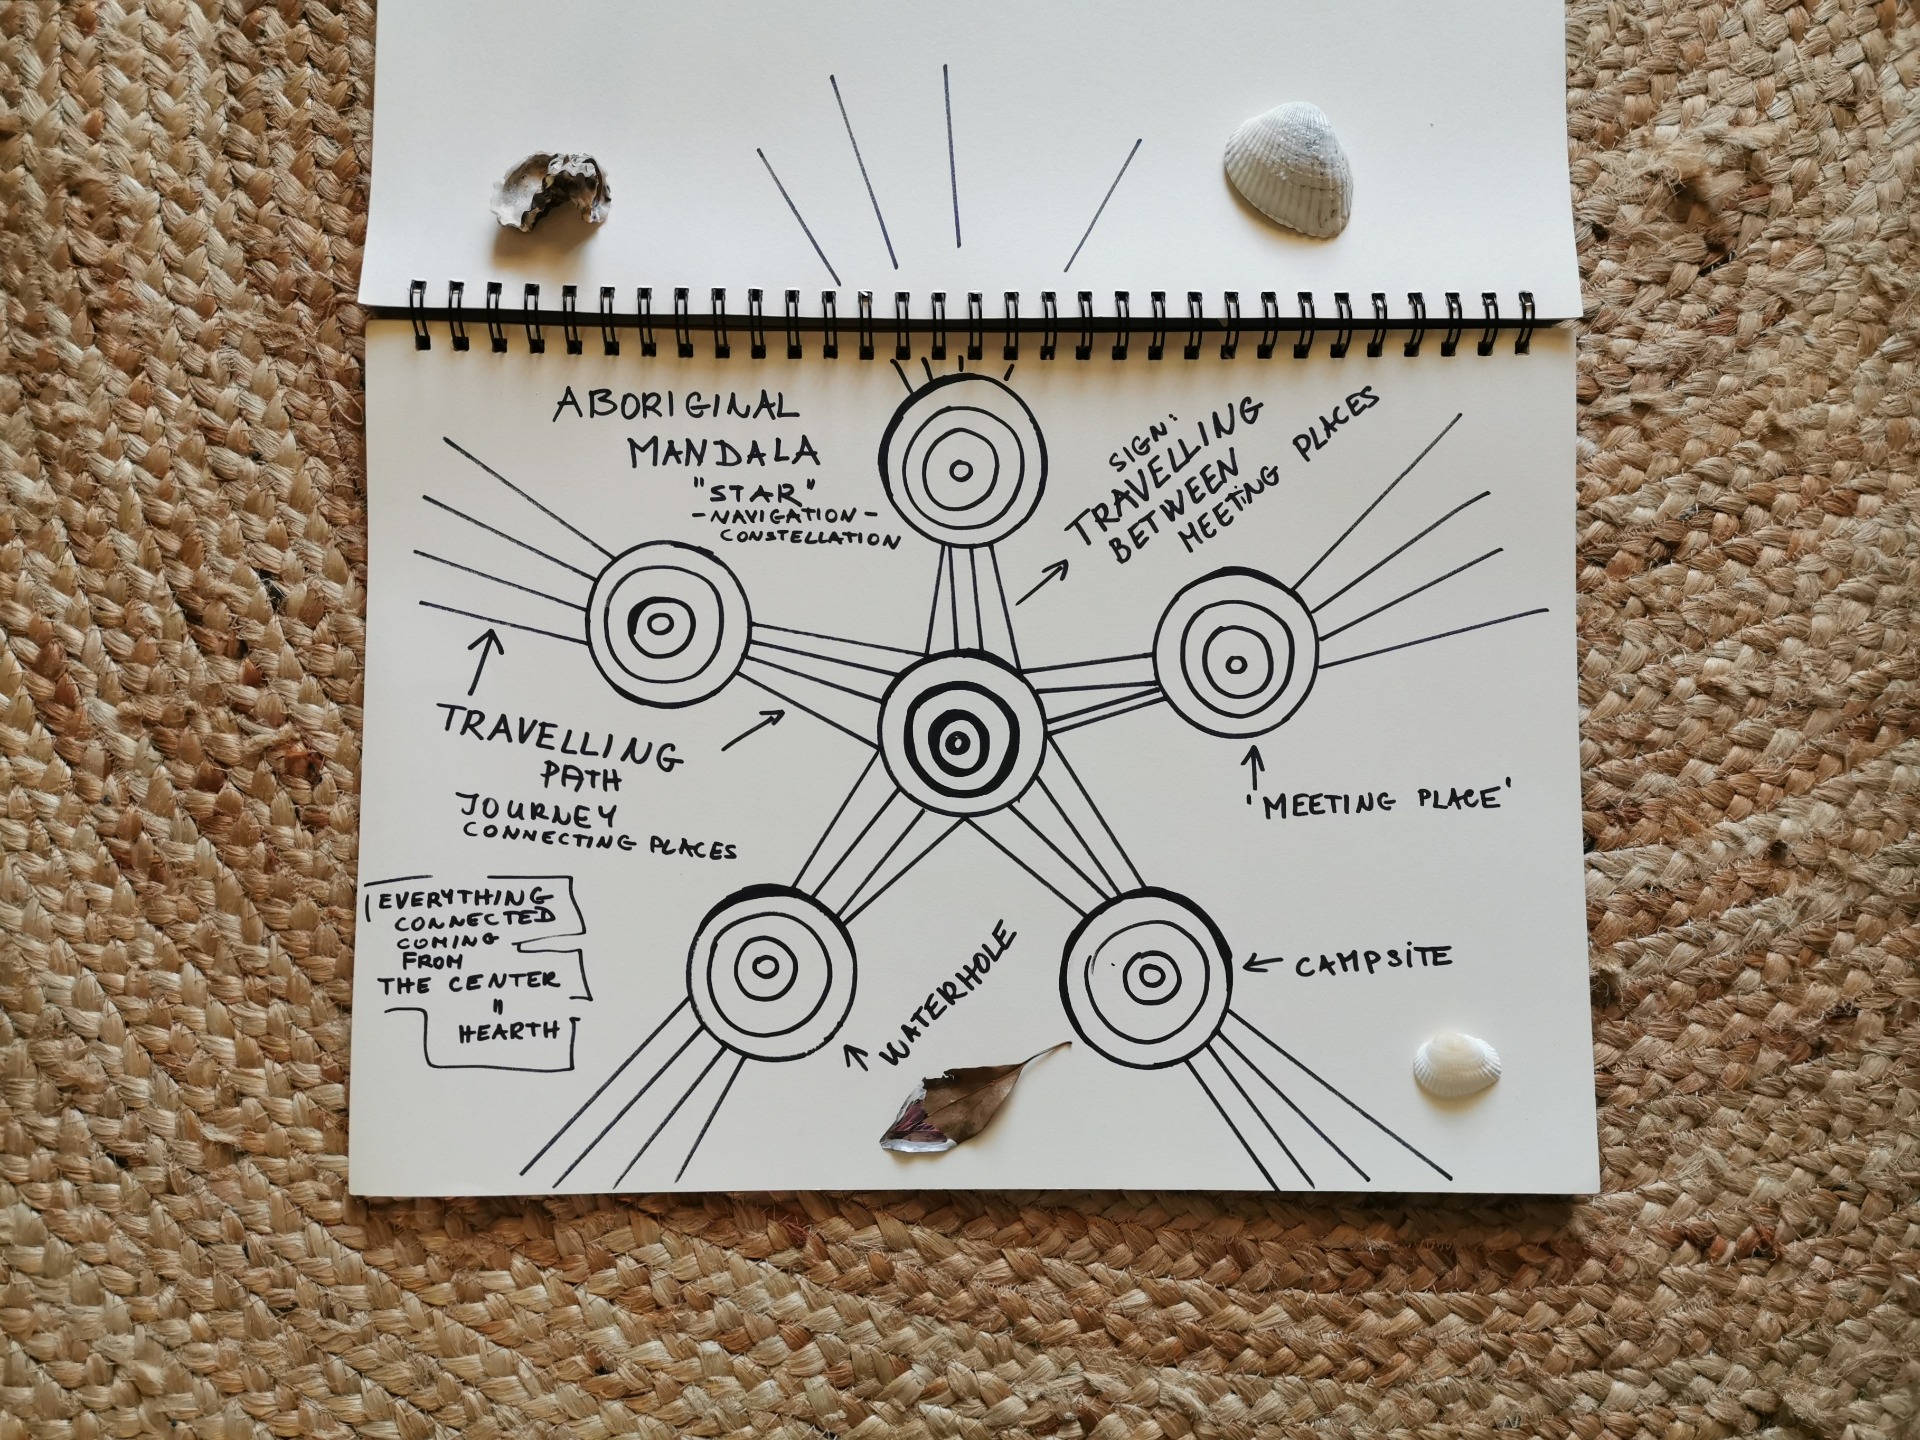 ABORIGINAL
MANDALA
"STAR"
-NAVIGATION-
CONSTELLATION
SIGN:
TRAVELLING
BETWEEN
MEETING PLACES
TRAVELLING
PATH
JOURNEY
CONNECTING PLACES
'MEETING PLACE'
EVERYTHING
CONNECTED
COMING
FROM
THE CENTER
=
HEARTH
WATERHOLE
CAMPSITE